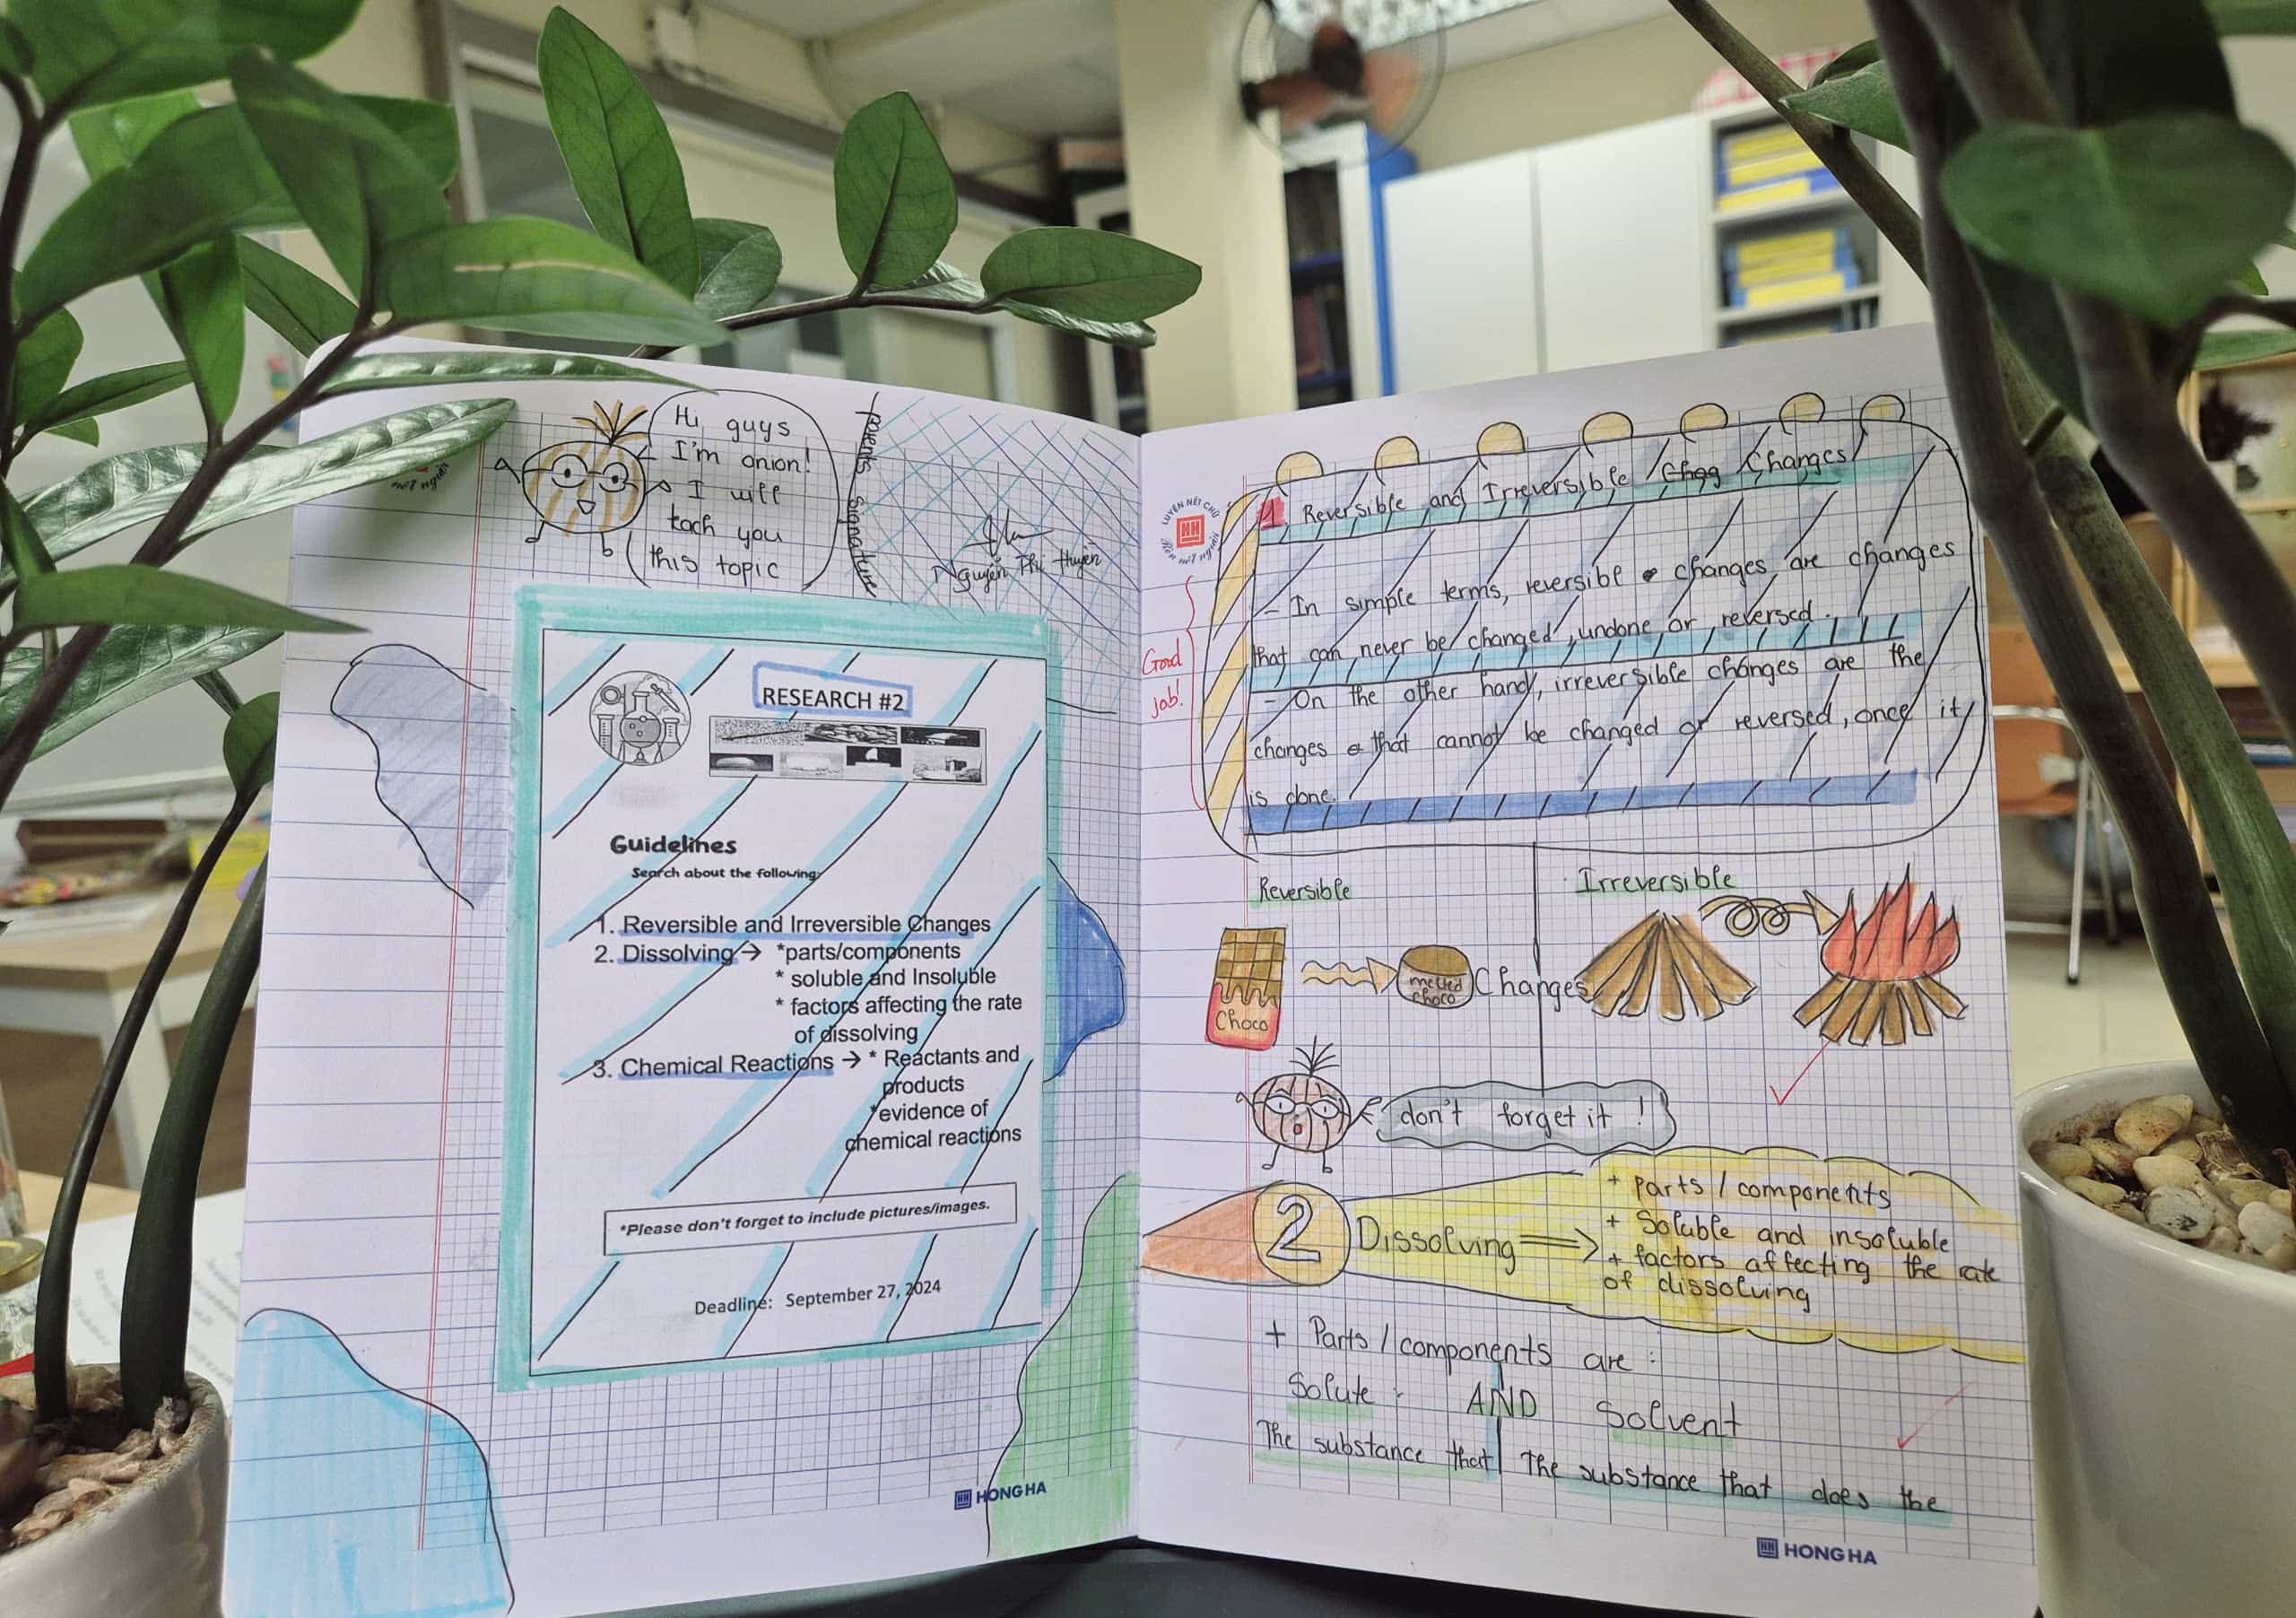 Hi guys
I'm onion!
I will
tach you
this topic
parents signature
Nguyễn Thị Huyền
nết người
RESEARCH #2
Guidelines
Search about the following:
1. Reversible and Irreversible Changes
2. Dissolving → *parts/components
* soluble and Insoluble
* factors affecting the rate
of dissolving
3. Chemical Reactions → * Reactants and
products
*evidence of
chemical reactions
*Please don't forget to include pictures/images.
Deadline: September 27, 2024
HONG HA
LUYỆN NÉT CHỮ
Rèn nết người
1. Reversible and Irreversible Chgg Changes
- In simple terms, reversible changes are changes
that can never be changed, undone or reversed.
- On the other hand, irreversible changes are the
changes that cannot be changed or reversed, once it
is done.
Good
job!
Reversible
Irreversible
Choco
melted
choco
Changes
don't forget it!
2 Dissolving ⟹
+ parts / components
+ Soluble and insoluble
+ factors affecting the rate
of dissolving
+ Parts / components are :
Solute : AND Solvent
The substance that
The substance that does the
HONG HA